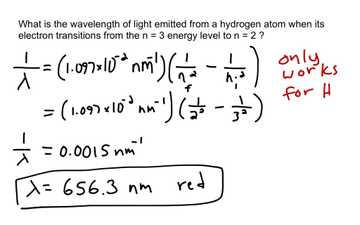 What is the wavelength of light emitted from a hydrogen atom when its
electron transitions from the n = 3 energy level to n = 2 ?
1/λ = (1.097x10⁻² nm⁻¹)(1/n_f² - 1/n_i²)
only
works
for H
= (1.097x10⁻² nm⁻¹)(1/2² - 1/3²)
1/λ = 0.0015 nm⁻¹
λ = 656.3 nm red